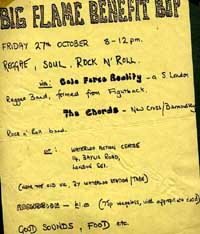 BIG FLAME BENEFIT BOP
FRIDAY 27th OCTOBER 8-12 p.m.
REGGAE, SOUL, ROCK N' ROLL.
Cole Force Reality - a S. London
Reggae Band, formed from Fightback.
The Chords - New Cross/Bermondsey
Rock n' Roll band.
WATERLOO ACTION CENTRE
14, BAYLIS ROAD,
LONDON SE1.
(NEAR THE OLD VIC, BY WATERLOO STATION/TUBE)
(75p unwaged, with appropriate card)
GOOD SOUNDS, FOOD etc.